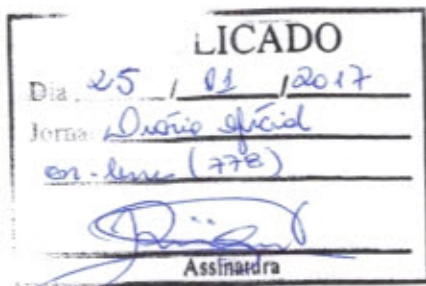 LICADO
Dia 25 / 01 / 2017
Jorna Diário oficial
on-line (778)
Assinatura